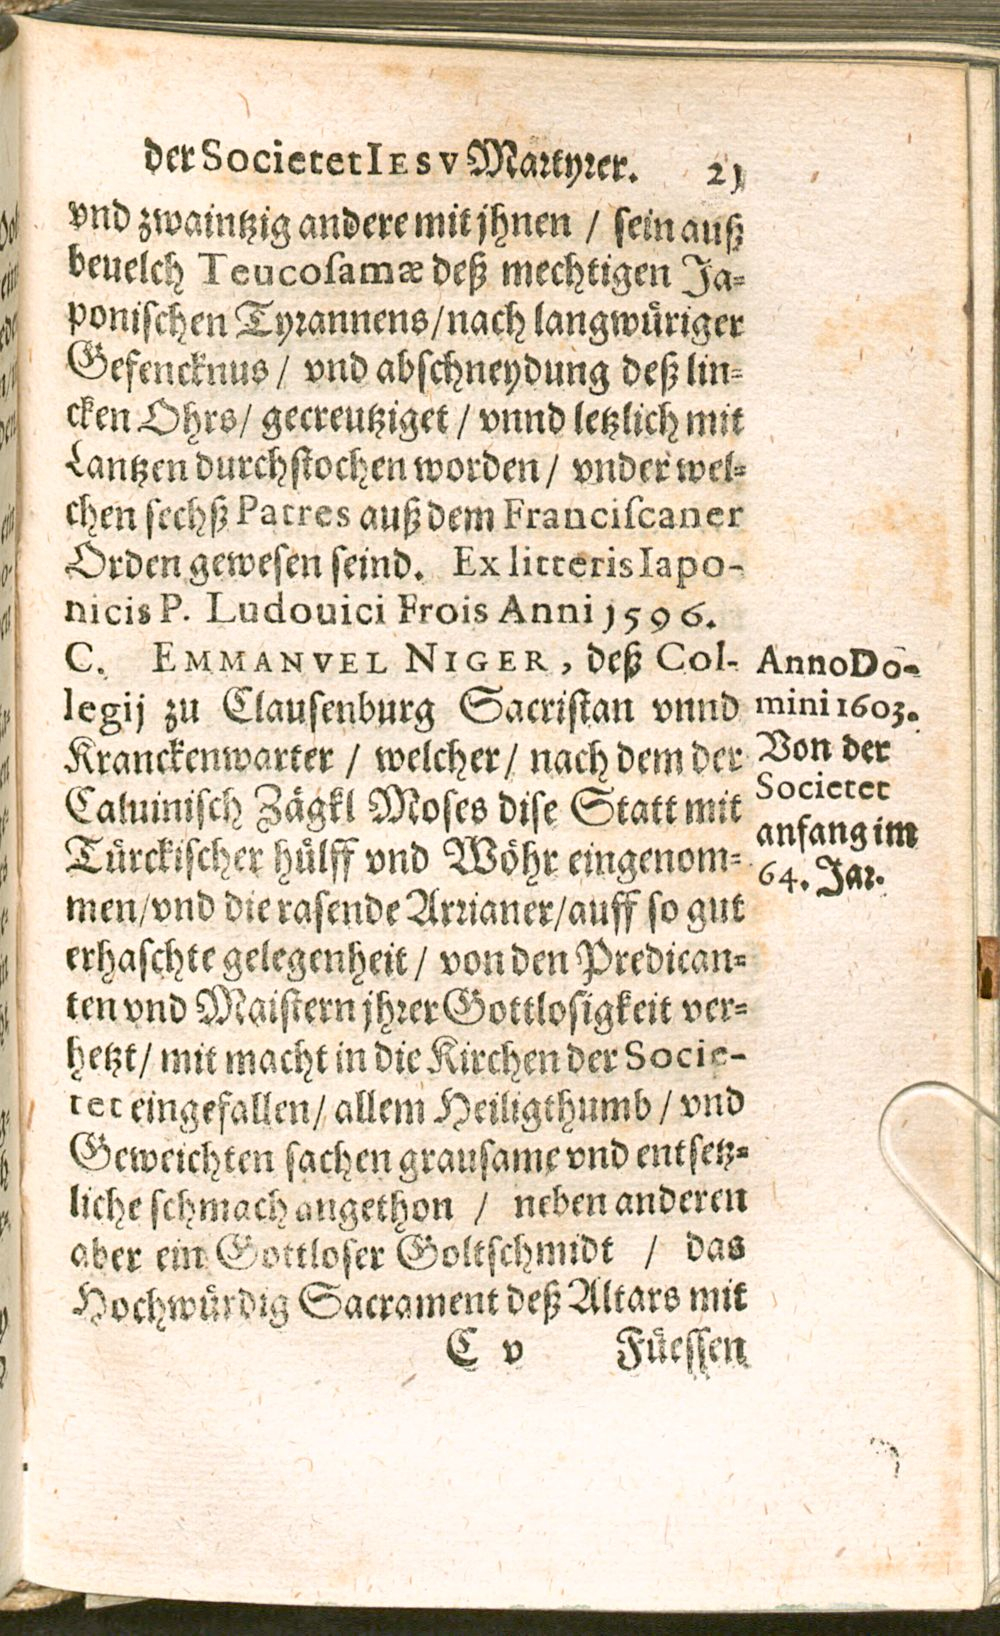 der Societet IESV Martyrer. 21
vnd zwaintzig andere mit jhnen / sein auß
beuelch Teucosamæ deß mechtigen Ja-
ponischen Tyrannens/nach langwüriger
Gefencknus / vnd abschneydung deß lin-
cken Ohrs/ gecreutziget / vnnd letzlich mit
Lantzen durchstochen worden / vnder wel-
chen sechß Patres auß dem Franciscaner
Orden gewesen seind. Ex litteris Iapo-
nicis P. Ludouici Frois Anni 1596.
C. EMMANVEL NIGER, deß Col-
legij zu Clausenburg Sacristan vnnd
Kranckenwarter / welcher / nach dem der
Caluinisch Zägkl Moses dise Statt mit
Türckischer hülff vnd Wöhr eingenom-
men/vnd die rasende Arrianer/auff so gut
erhaschte gelegenheit / von den Predican-
ten vnd Maistern jhrer Gottlosigkeit ver-
hetzt/ mit macht in die Kirchen der Socie-
tet eingefallen/ allem Heiligthumb / vnd
Geweichten sachen grausame vnd entsetz-
liche schmach angethon / neben anderen
aber ein Gottloser Goltschmidt / das
Hochwürdig Sacrament deß Altars mit
C v Füessen
Anno Do-
mini 1603.
Von der
Societet
anfang im
64. Jar.